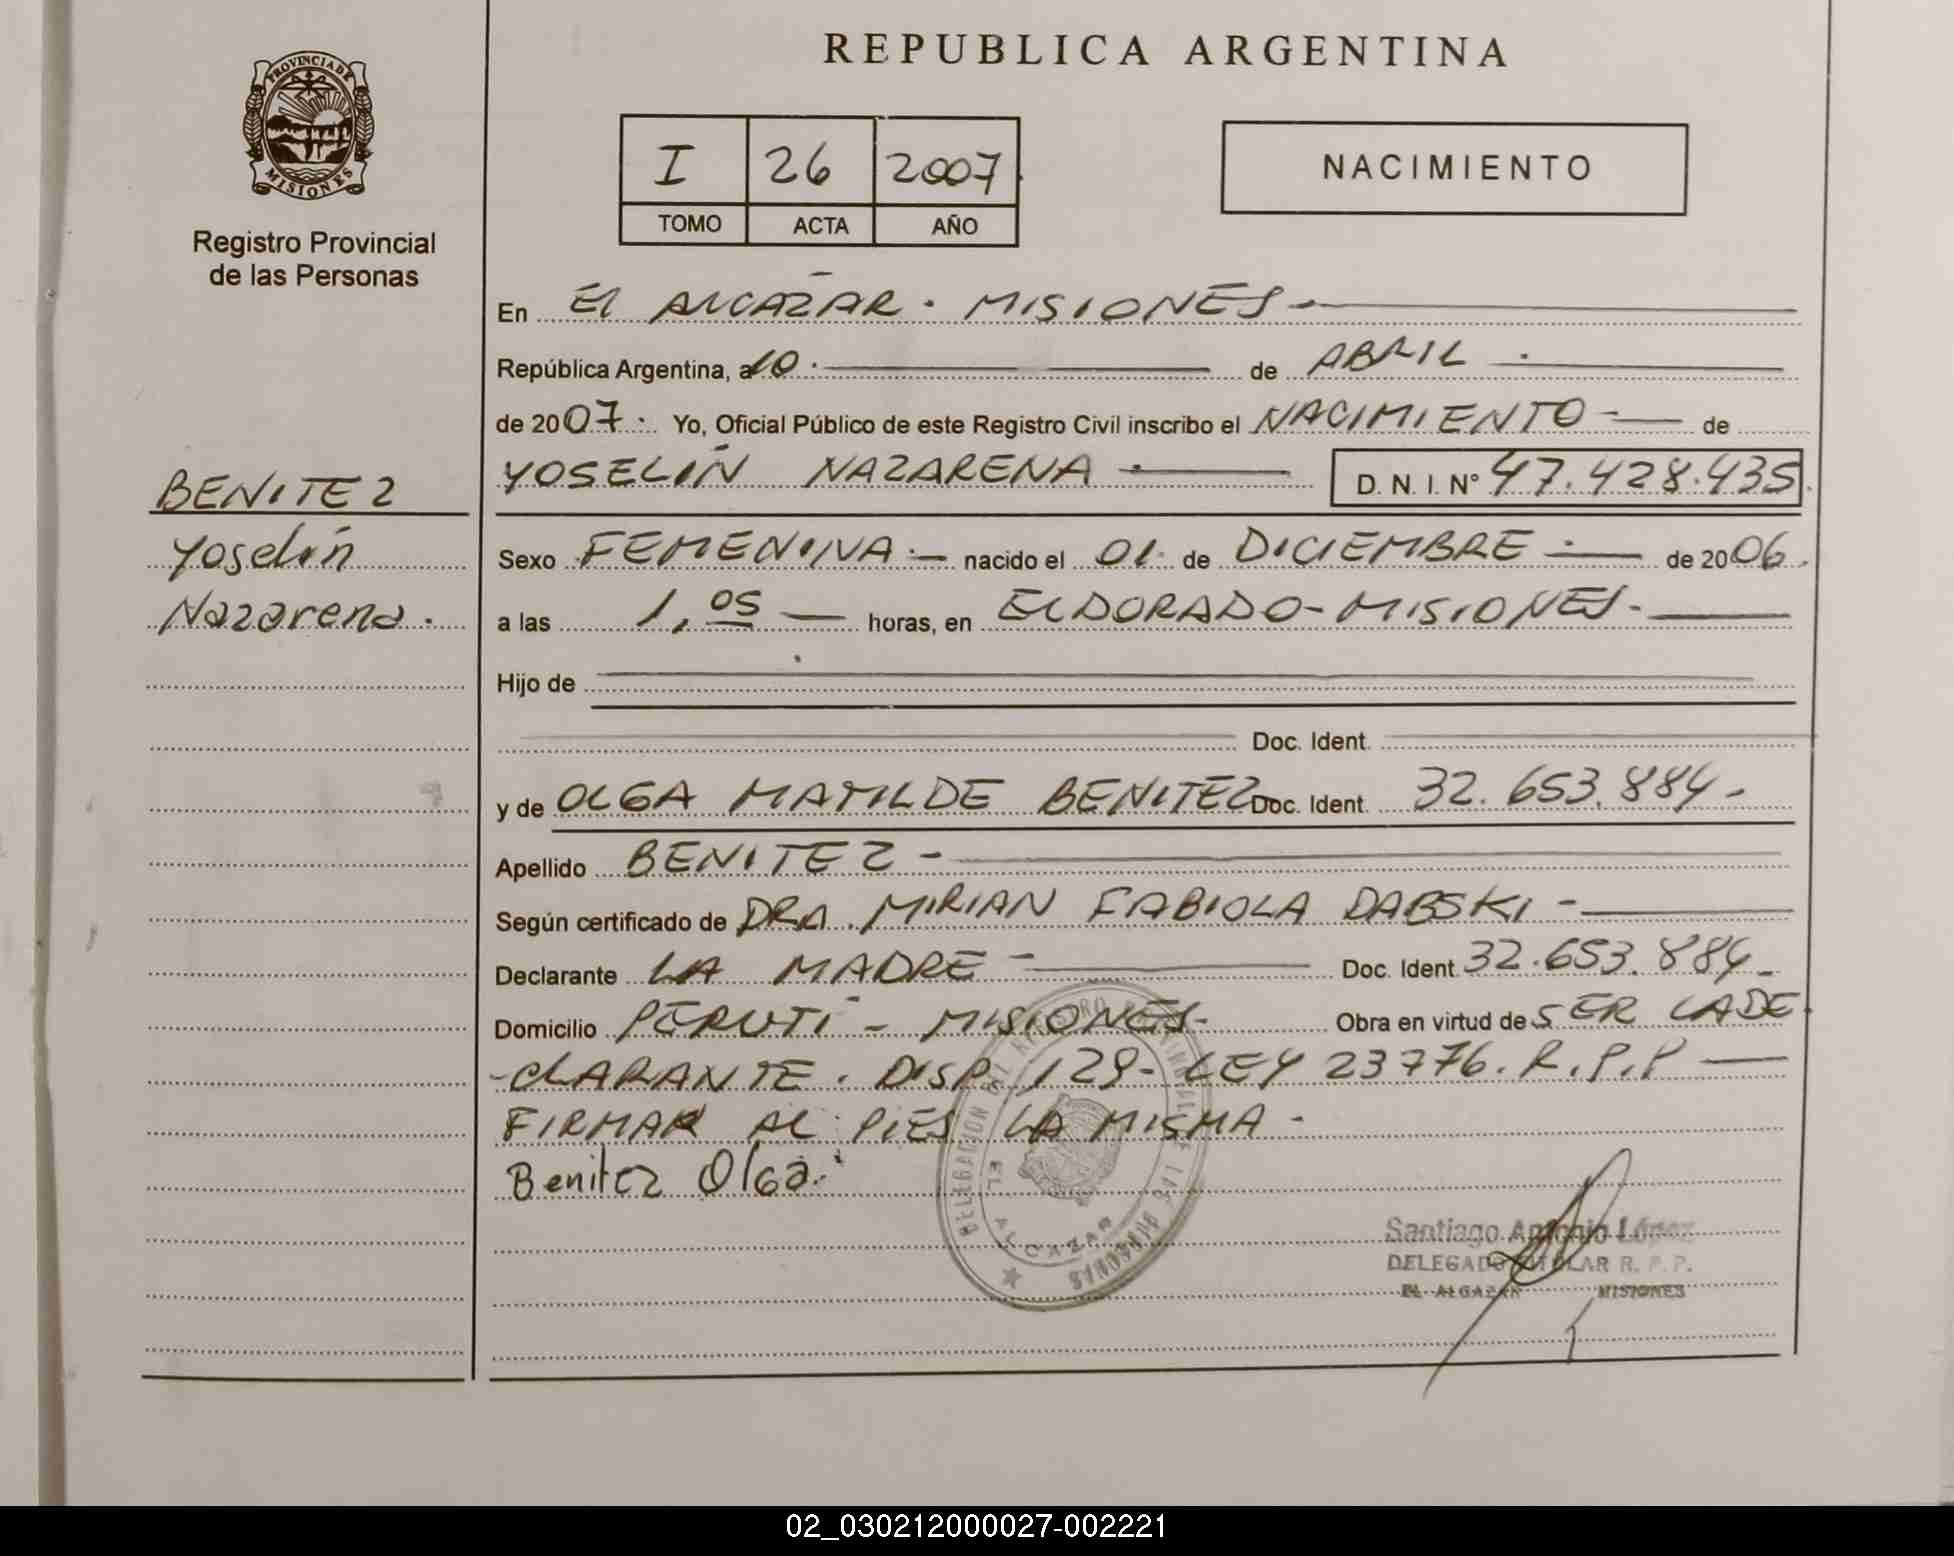 REPUBLICA ARGENTINA
PROVINCIA DE MISIONES
Registro Provincial
de las Personas
I 26 2007
TOMO ACTA AÑO
NACIMIENTO
En El ALCAZAR - MISIONES -
República Argentina, a 10 de ABRIL
de 2007. Yo, Oficial Público de este Registro Civil inscribo el NACIMIENTO - de
YOSELÍN NAZARENA - D. N. I. Nº 47.428.435
BENITEZ
Yoselín
Nazarena.
Sexo FEMENINA - nacido el 01 de DICIEMBRE - de 2006
a las 1,05 horas, en ELDORADO - MISIONES -
Hijo de
Doc. Ident.
y de OLGA MATILDE BENITEZ Doc. Ident. 32.653.884 -
Apellido BENITEZ -
Según certificado de DRA. MIRIAN FABIOLA DABSKI -
Declarante LA MADRE - Doc. Ident. 32.653.884 -
Domicilio PERUTÍ - MISIONES - Obra en virtud de SER LA DE
-CLARANTE. DISP. 129 - LEY 23776. R.P.P
FIRMAR AL PIES LA MISMA -
Benitez Olga.
DELEGACION DEL REGISTRO PROVINCIAL DE LAS PERSONAS
EL ALCAZAR
Santiago Antonio López
DELEGADO TITULAR R. P. P.
EL ALCAZAR MISIONES
02_030212000027-002221